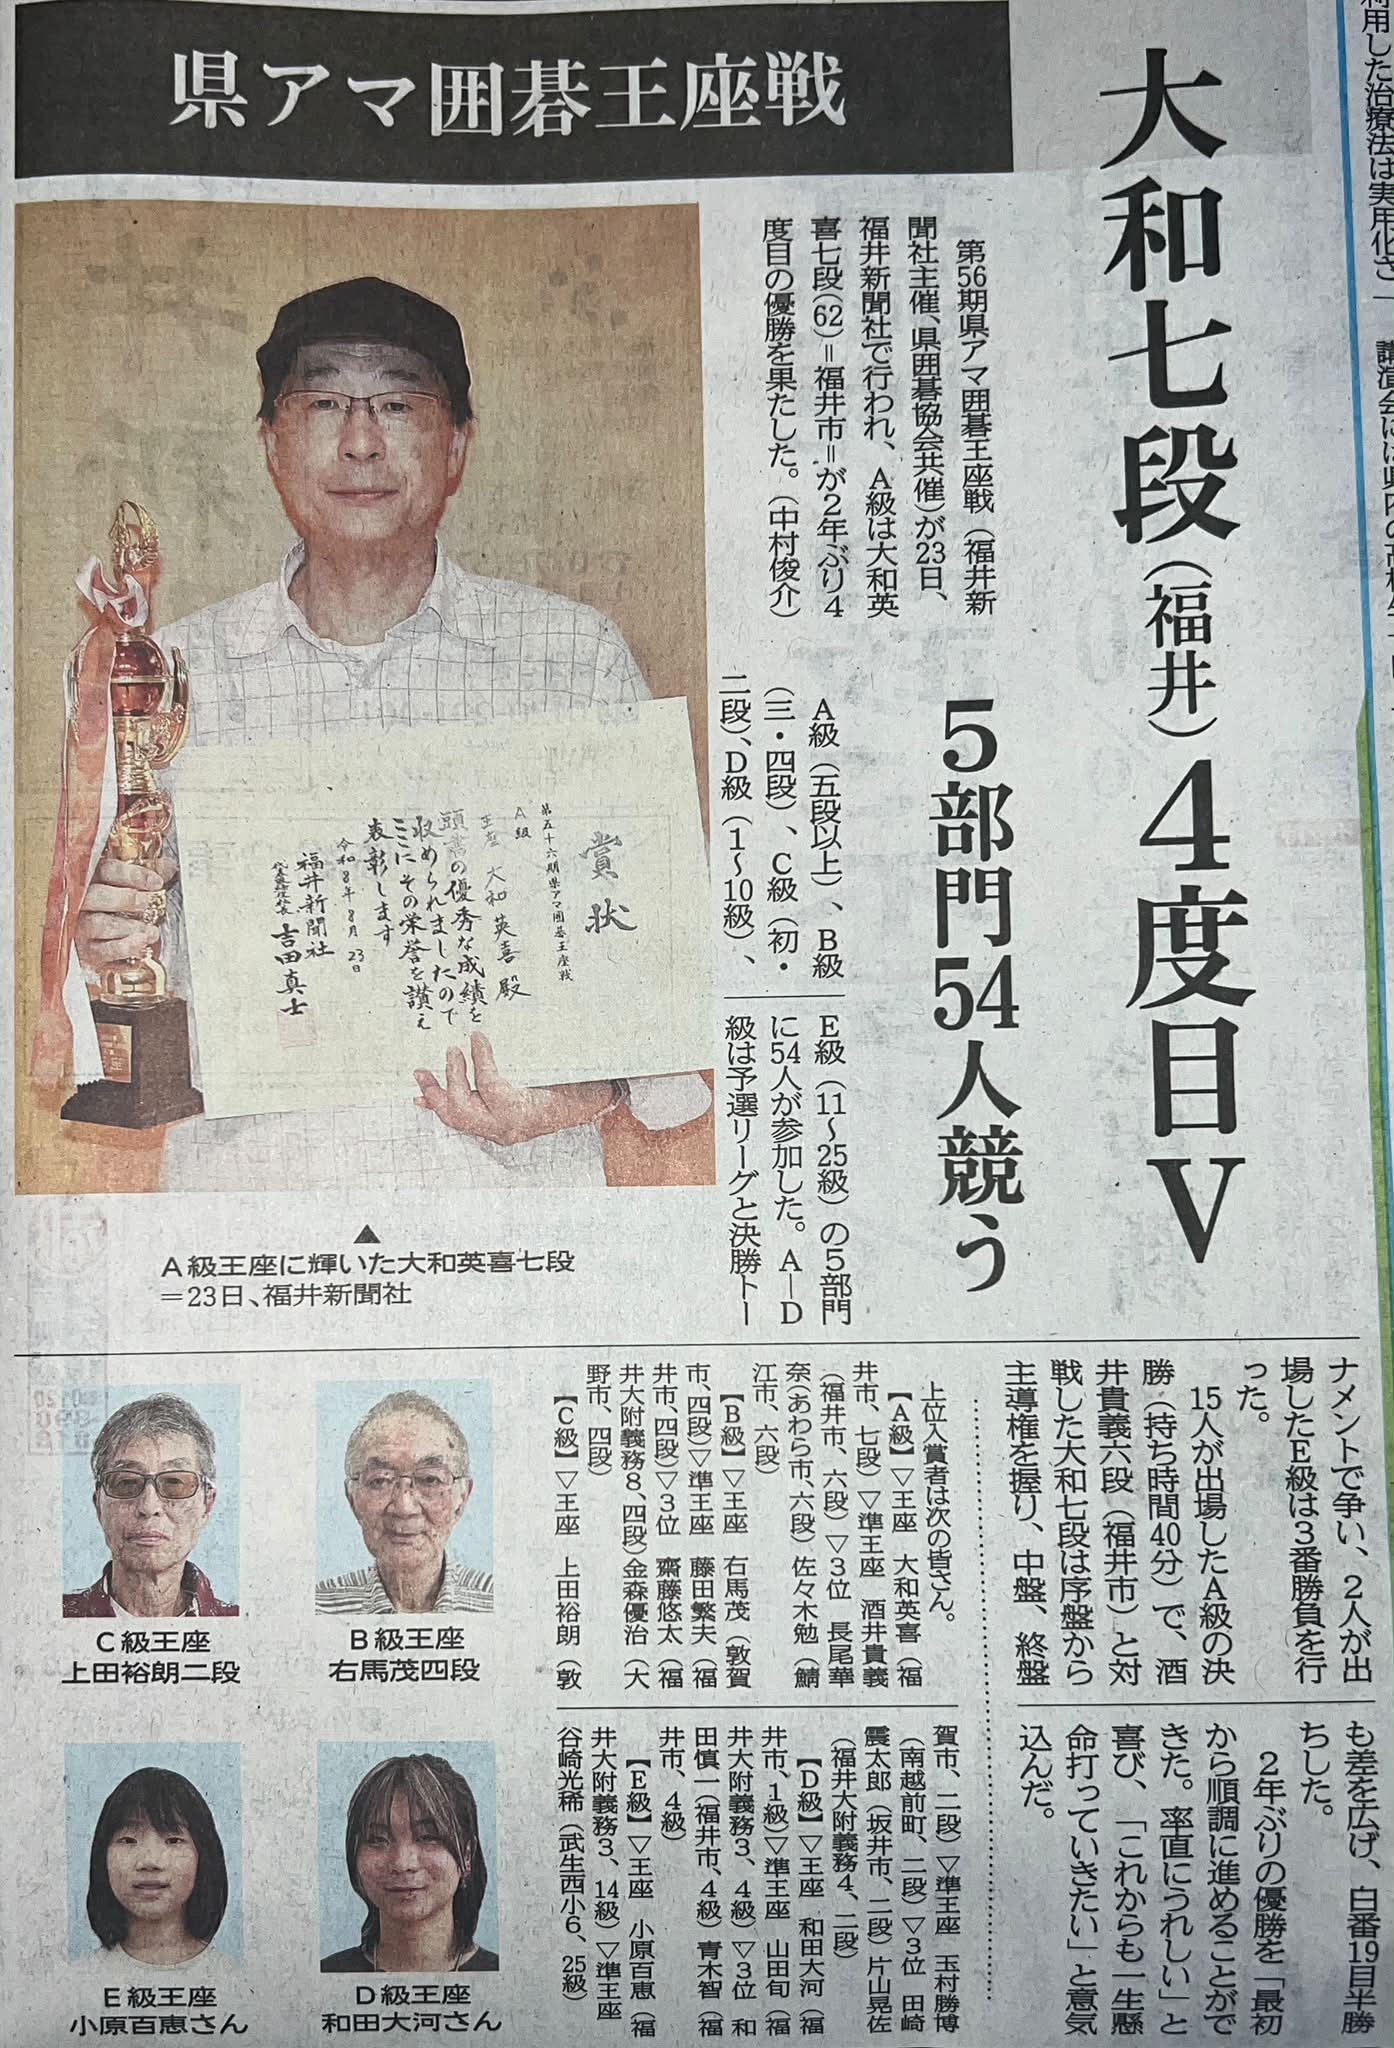 県アマ囲碁王座戦
大和七段(福井)4度目V
5部門54人競う
第56期県アマ囲碁王座戦(福井新
聞社主催、県囲碁協会共催)が23日、
福井新聞社で行われ、A級は大和英
喜七段(62)=福井市=が2年ぶり4
度目の優勝を果たした。(中村俊介)
A級(五段以上)、B級
(三・四段)、C級(初・
二段)、D級(1~10級)、
E級(11~25級)の5部門
に54人が参加した。A―D
級は予選リーグと決勝トー
ナメントで争い、2人が出
場したE級は3番勝負を行
った。
15人が出場したA級の決
勝(持ち時間40分)で、酒
井貴義六段(福井市)と対
戦した大和七段は序盤から
主導権を握り、中盤、終盤
も差を広げ、白番19目半勝
ちした。
2年ぶりの優勝を「最初
から順調に進めることがで
きた。率直にうれしい」と
喜び、「これからも一生懸
命打っていきたい」と意気
込んだ。
上位入賞者は次の皆さん。
【A級】▽王座 大和英喜(福
井市、七段)▽準王座 酒井貴義
(福井市、六段)▽3位 長尾華
奈(あわら市、六段)佐々木勉(鯖
江市、六段)
【B級】▽王座 右馬茂(敦賀
市、四段)▽準王座 藤田繁夫(福
井市、四段)▽3位 齋藤悠太(福
井大附義務8、四段)金森優治(大
野市、四段)
【C級】▽王座 上田裕朗(敦
賀市、二段)▽準王座 玉村勝博
(南越前町、二段)▽3位 田崎
震太郎(坂井市、二段)片山晃佐
(福井大附義務4、二段)
【D級】▽王座 和田大河(福
井市、1級)▽準王座 山田旬(福
井大附義務3、4級)▽3位 和
田慎一(福井市、4級)青木智(福
井市、4級)
【E級】▽王座 小原百恵(福
井大附義務3、14級)▽準王座
谷崎光稀(武生西小6、25級)
賞状
第五十六期県アマ囲碁王座戦
A級
王座 大和英喜殿
頭書の優秀な成績を
収められましたので
ここにその栄誉を讃え
表彰します
令和8年8月23日
福井新聞社
吉田真士
▲
A級王座に輝いた大和英喜七段
=23日、福井新聞社
C級王座
上田裕朗二段
B級王座
右馬茂四段
E級王座
小原百恵さん
D級王座
和田大河さん
利用した治療法は実用化さ